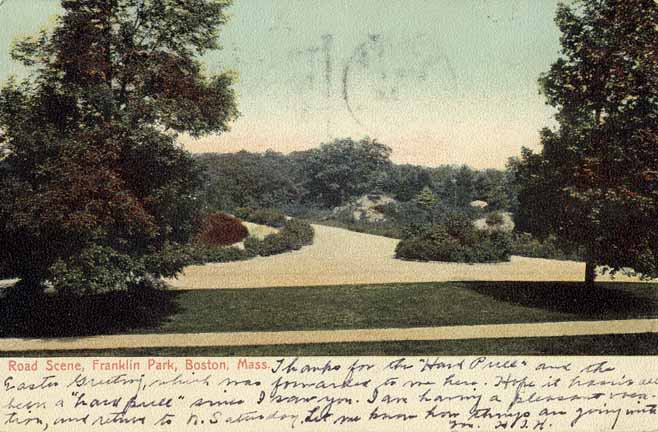 Road Scene, Franklin Park, Boston, Mass. Thanks for the "Hard Pull" and the
Easter Greeting, which was forwarded to me here. Hope it hasn't all
been a "hard pull" since I saw you. I am having a pleasant vaca-
tion, and return to N. Saturday. Let me know how things are going with
H.